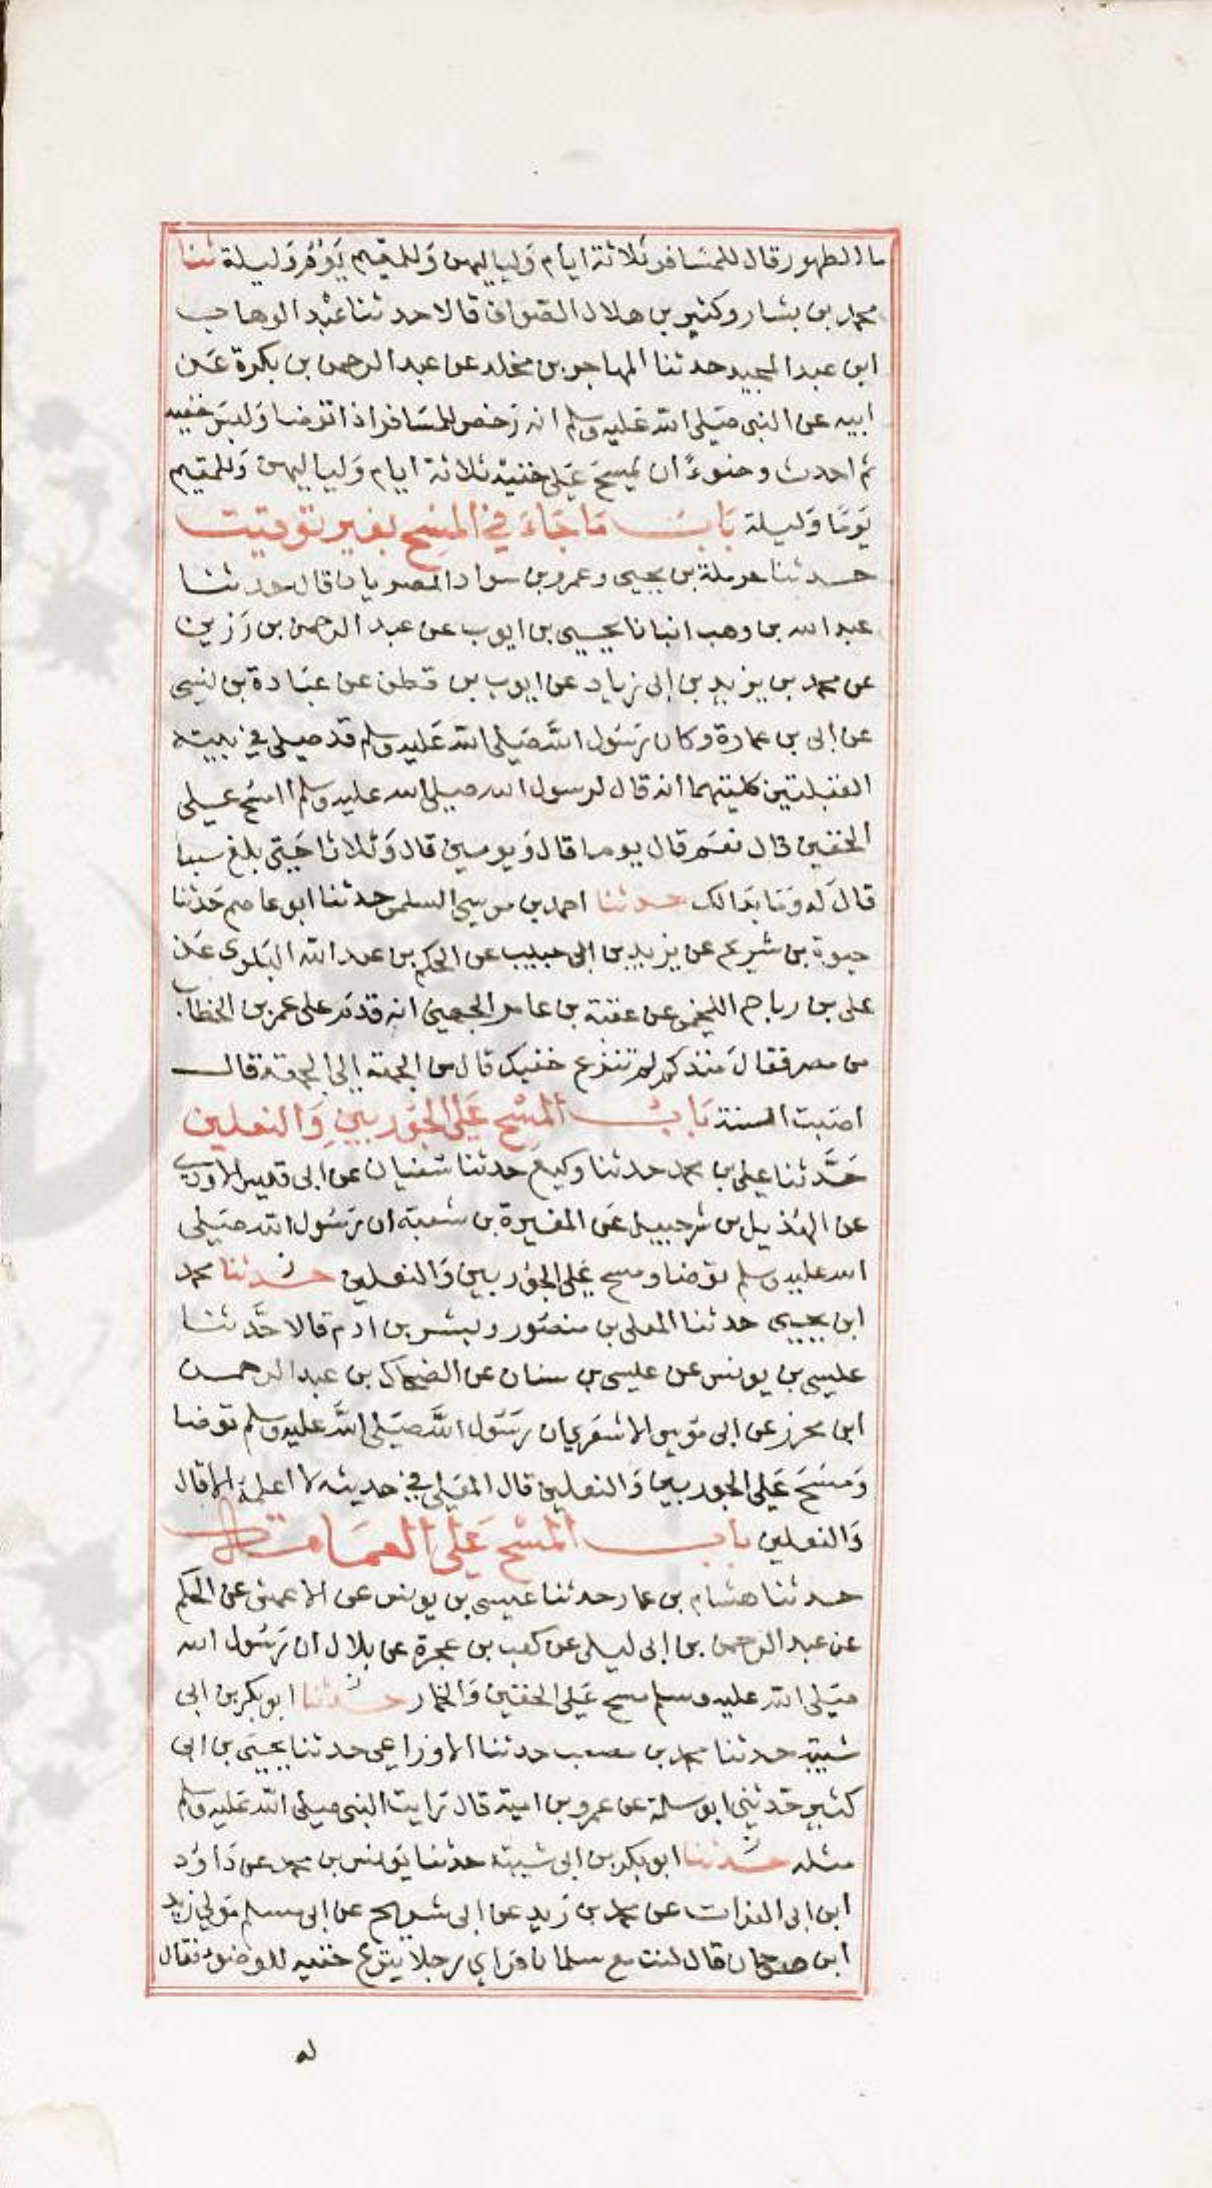 ما الطهور قال للمسافر ثلاثة ايام وَلياليهن وَللمقيم يَوْم وَليلة ثنا
محمد بن بشار وكثير بن هلال الصواف قالا حدثنا عبْد الوهاب
ابن عبد المجيد حدثنا المهاجر بن مخلد عن عبد الرحمن بن بكرة عَن
ابيه عن النبي صَلى الله عَليه وسلم انه رَخص للمسَافر اذا توضا وَلبسَ خفيه
ثم احدث وضوءً ان يمسَحَ عَلى خفيْه ثلاثة ايام وَلياليهن وَللمقيم
يَومًا وَليلة بَابُ مَا جَاءَ فِي المسْح بغير توقيت
حدثنا حرملة بن يحيى وعمرو بن سواد المصريان قال حدثنا
عبد الله بن وهب انبانا يحيى بن ايوب عن عبد الرحمن بن رَزين
عن محمد بن يزيد بن ابي زياد عن ايوب بن قطن عن عبَادة بن نسي
عن ابي بن عمارة وكان رَسُول الله صَلى الله عَليه وسلم قد صلى فِي بيته
القبلتين كليتهما انه قال لرسول الله صلى الله عليه وسلم اامسَح على
الخفين قال نعَم قال يوما قال وَيومين قال وَثلاثا حَتى بلغ سبعا
قال لَه وَمَا بدَا لك حدثنا احمد بن موسى السلمي حدثنا ابو عاصم حَدثنا
حيوة بن شريح عن يزيد بن ابي حبيب عن الحكم بن عبد الله البَلوى عَن
على بن رباح اللخمي عن عقبة بن عامر الجهني انه قدمَ على عمر بن الخطاب
من مصر فقال مَنذ كم لم تنزع خفيك قال من الجمعة الى الجمعة قال
اصَبت السنة بَابُ المسْح عَلى الجَوْربينِ وَالنعلين
حَدَّثنا على بن محمد حدثنا وكيع حدثنا سُفيان عن ابي قيس الاودي
عن الهُذيل بن شرحبيل عَن المغيرة بن شعبَة ان رَسُول الله صَلى
الله عليه وسلم توضا ومسح عَلى الجَوْربين وَالنعلين حدثنا محمد
ابن يحيى حدثنا المعلى بن منصُور وبشر بن ادم قالا حَدَّثنا
عليسى بن يونس عن عليسى بن سنان عن الضحاك بن عبد الرحمن
ابن محرز عن ابي مَوسى الاشعَري ان رَسَول الله صَلى الله عليه وسلم توضا
وَمسَحَ عَلى الجوربين وَالنعلين قال المعَلى فِي حديثه لا اعلمه الا قال
وَالنعلين باب المسْح عَلى العمَامة
حدثنا هشام بن عمار حدثنا عيسى بن يونس عن الاعمش عن الحكم
عن عبد الرحمن بن ابي ليلى عن كعب بن عجرة عن بلال ان رَسُول الله
صَلى الله عليه وسلم مسح عَلى الخفين وَالخمار حدثنا ابو بكر بن ابي
شيبة حدثنا محمد بن مصعب حدثنا الاوزاعي حدثنا يحيىَ بن ابي
كثير حَدثني ابو سلمة عن عمرو بن امية قال رَايت النبي صلى الله عَليه وسلم
مثله حدثنا ابو بكر بن ابي شيبة حدثنا يَونس بن محمد عن دَاوُد
ابن ابي الفرات عن محمد بن زَيد عن ابي شريح عن ابي مسلم مَولى زيد
ابن صوحان قال كنت مع سلمان فراي رجلا ينزع خفيه للوضوء فقال
له